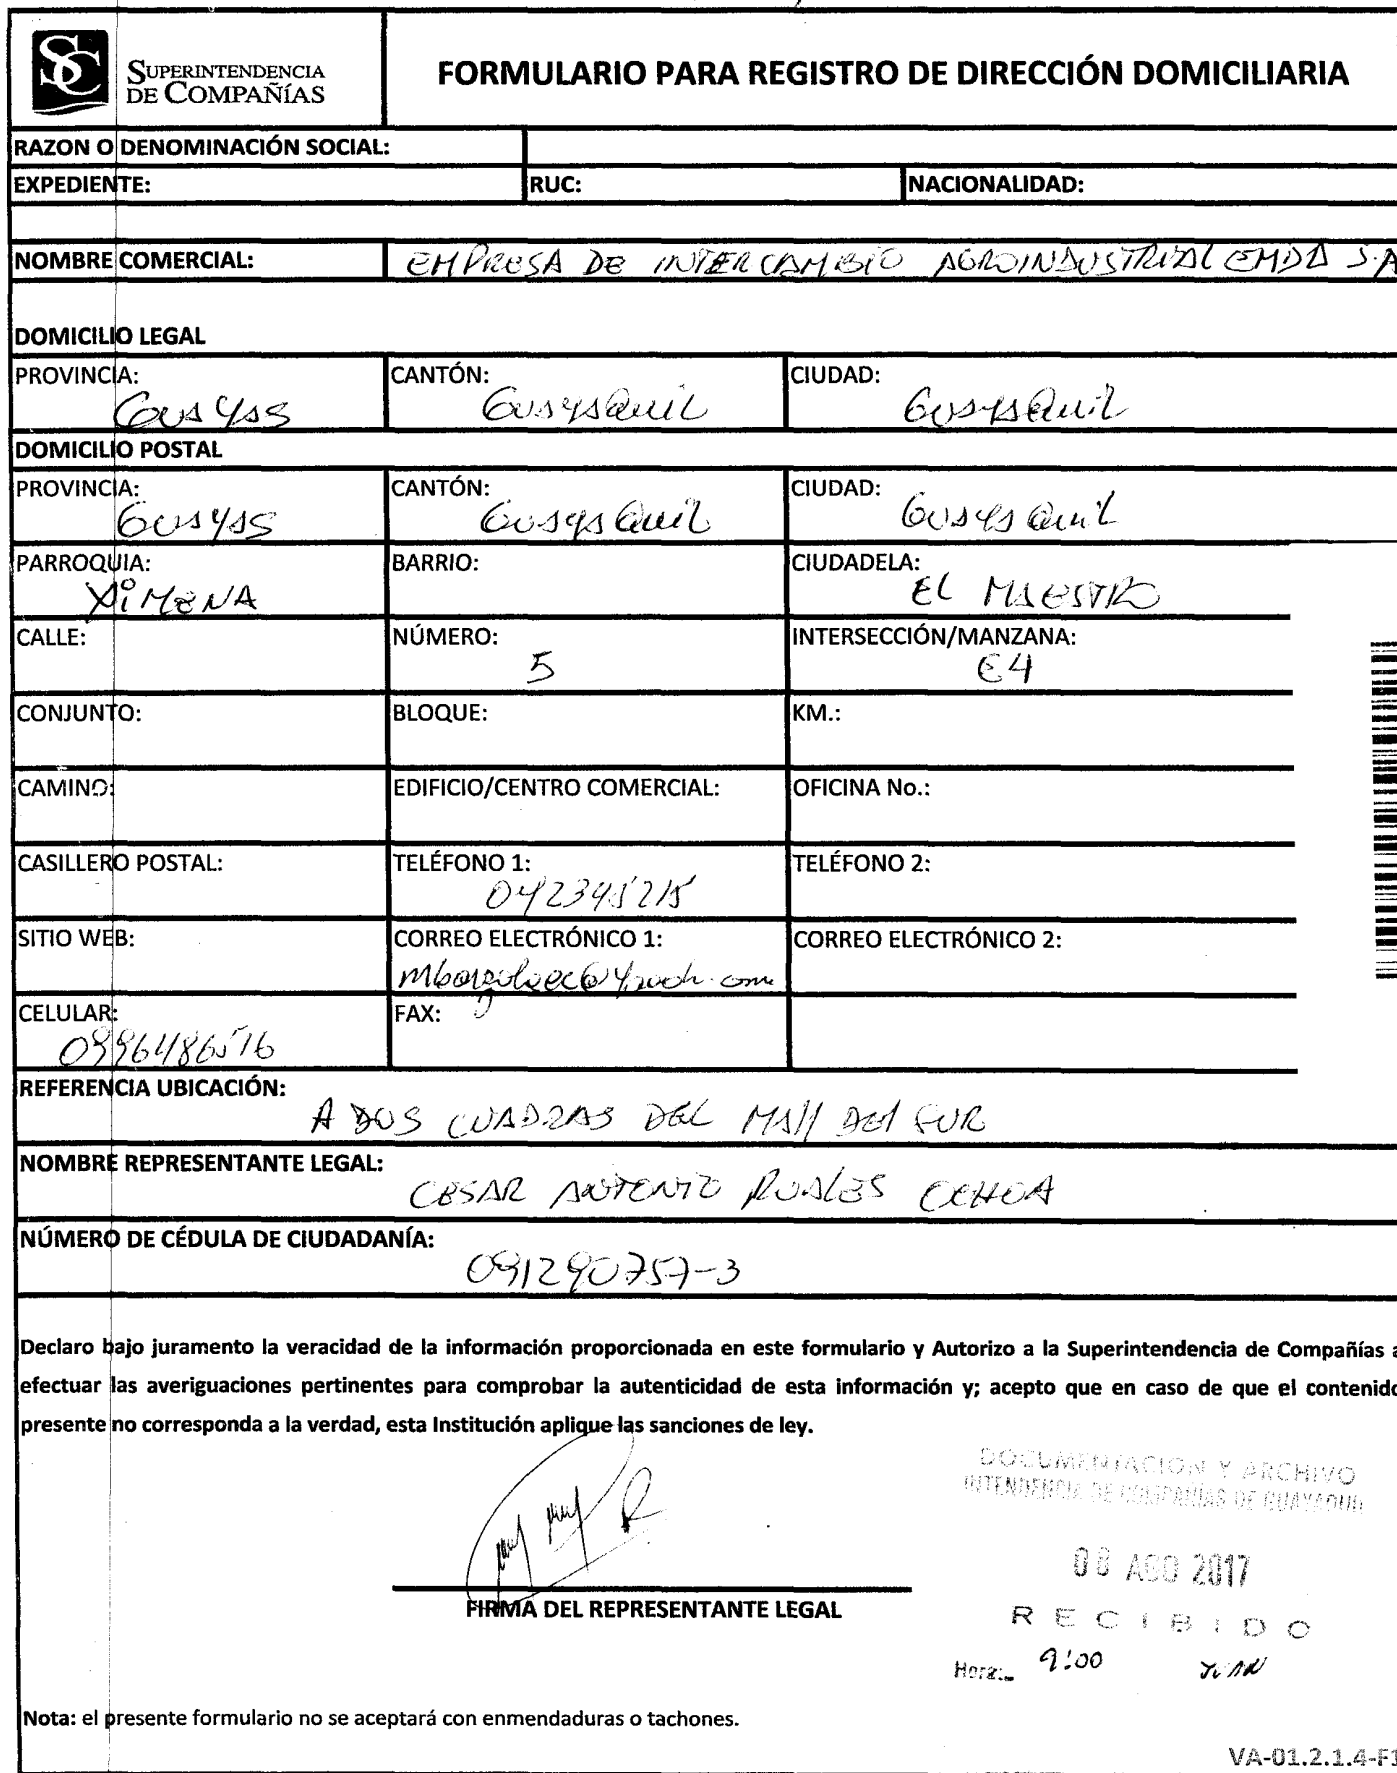 SUPERINTENDENCIA
DE COMPAÑÍAS
FORMULARIO PARA REGISTRO DE DIRECCIÓN DOMICILIARIA
RAZON O DENOMINACIÓN SOCIAL:
EXPEDIENTE: RUC: NACIONALIDAD:
NOMBRE COMERCIAL: EMPRESA DE INTERCAMBIO AGROINDUSTRIAL EMDA S.A
DOMICILIO LEGAL
PROVINCIA: CANTÓN: CIUDAD:
Guayas Guayaquil Guayaquil
DOMICILIO POSTAL
PROVINCIA: CANTÓN: CIUDAD:
Guayas Guayaquil Guayaquil
PARROQUIA: BARRIO: CIUDADELA:
XiMENA EL MAESTRO
CALLE: NÚMERO: INTERSECCIÓN/MANZANA:
5 E4
CONJUNTO: BLOQUE: KM.:
CAMINO: EDIFICIO/CENTRO COMERCIAL: OFICINA No.:
CASILLERO POSTAL: TELÉFONO 1: TELÉFONO 2:
042345215
SITIO WEB: CORREO ELECTRÓNICO 1: CORREO ELECTRÓNICO 2:
CELULAR: FAX:
0996486576
REFERENCIA UBICACIÓN:
A DOS CUADRAS DEL MAll Del SUR
NOMBRE REPRESENTANTE LEGAL:
CESAR ANTONIO RUALES OCHOA
NÚMERO DE CÉDULA DE CIUDADANÍA:
091290757-3
Declaro bajo juramento la veracidad de la información proporcionada en este formulario y Autorizo a la Superintendencia de Compañías a
efectuar las averiguaciones pertinentes para comprobar la autenticidad de esta información y; acepto que en caso de que el contenido
presente no corresponda a la verdad, esta Institución aplique las sanciones de ley.
DOCUMENTACION Y ARCHIVO
INTENDENCIA DE COMPAÑIAS DE GUAYAQUIL
08 AGO 2017
FIRMA DEL REPRESENTANTE LEGAL
RECIBIDO
Hora: 9:00
Nota: el presente formulario no se aceptará con enmendaduras o tachones.
VA-01.2.1.4-F1